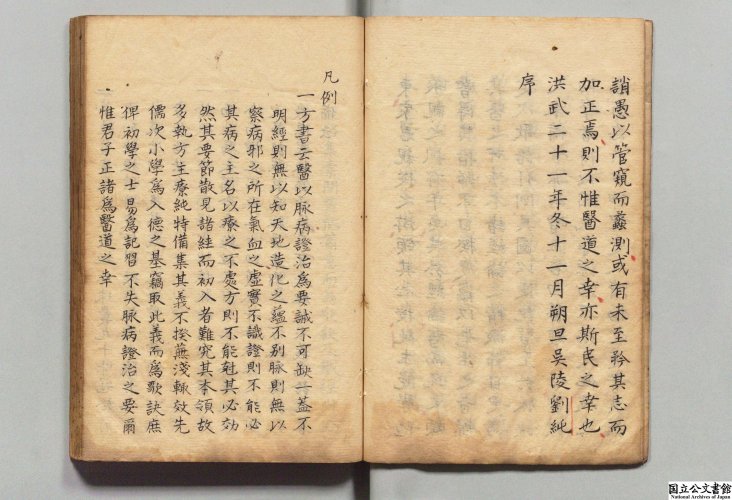 誚愚以管窺而蠡測或有未至矜其志而
加正焉則不惟醫道之幸亦斯民之幸也
洪武二十一年冬十一月朔旦吳陵劉純
序
凡例
一方書云醫以脉病證治爲要誠不可缺一蓋不
明經則無以知天地造化之蘊不别脉則無以
察病邪之所在氣血之虛實不識證則不能必
其病之主名以療之不處方則不能尅其必効
然其要節散見諸經而初入者難究其本領故
多執方主療純特備集其義不揆蕪淺輒效先
儒次小學爲入德之基竊取此義而爲歌訣庶
俾初學之士易爲記習不失脉病證治之要爾
惟君子正諸爲醫道之幸
国立公文書館
National Archives of Japan